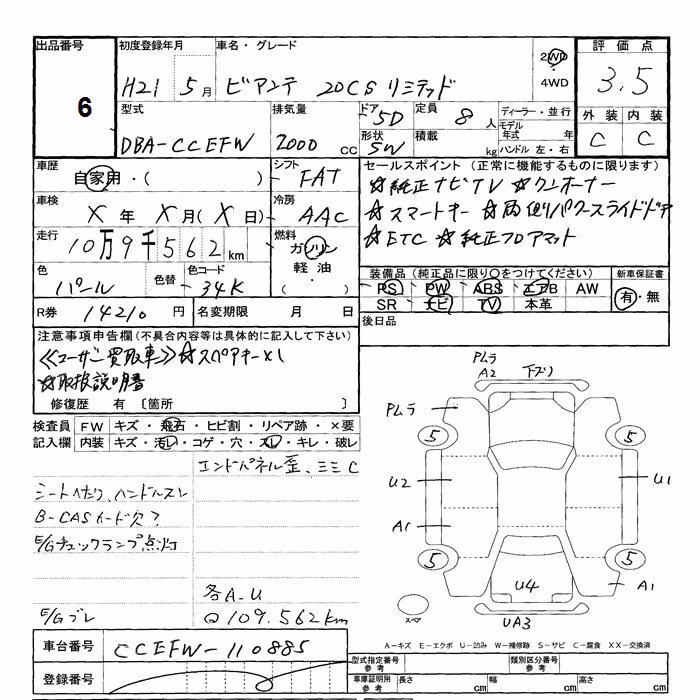 出品番号 初度登録年月 車名・グレード 評価点
6
H21 5月 ビアンテ 20CS リミテッド 2WD ・ 4WD 3.5
型式 排気量 ドア 5D 定員 8人 ディーラー・並行 外装 内装
DBA-CCEFW 2000cc 形状 SW 積載 kg モデル年式 年 ハンドル 左・右 C C
車歴 シフト セールスポイント(正常に機能するものに限ります)
自家用・( ) FAT ☆純正ナビTV ☆ワンオーナー
車検 冷房 ☆スマートキー ☆両側パワースライドドア
X年 X月(X日) AAC ☆ETC ☆純正フロアマット
走行 燃料
10万9千562km ガソリン
軽油・
( )
色 色替 色コード 装備品(純正品に限り〇をつけてください) 新車保証書
パール 34K PS PW ABS エアB AW 有・無
SR ナビ TV 本革
R券 14210円 名変期限 月 日 後日品
注意事項申告欄(不具合内容等は具体的に記入して下さい)
≪ユーザー買取車≫ ☆スペアキーx1
☆取扱説明書
修復歴 有〔箇所 〕
検査員記入欄 FW キズ・飛石・ヒビ割・リペア跡・×要
内装 キズ・汚れ・コゲ・穴・スレ・キレ・破レ
エンドパネル歪、ミミC
シートヘタリ、ハンドルスレ
B-CASカード欠?
E/Gチェックランプ点灯
各A-U
E/Gブレ
@109.562km
PムラA2 下ズリ
Pムラ
5 5
U2 U1
A1
5 5
U4 A1
スペア UA3
A-キズ E-エクボ U-凹み W-補修跡 S-サビ C-腐食 XX-交換済
車台番号 CCEFW-110885
登録番号
型式指定番号 参考 類別区分番号 参考
車庫証明用 参考 長さ cm 幅 cm 高さ cm